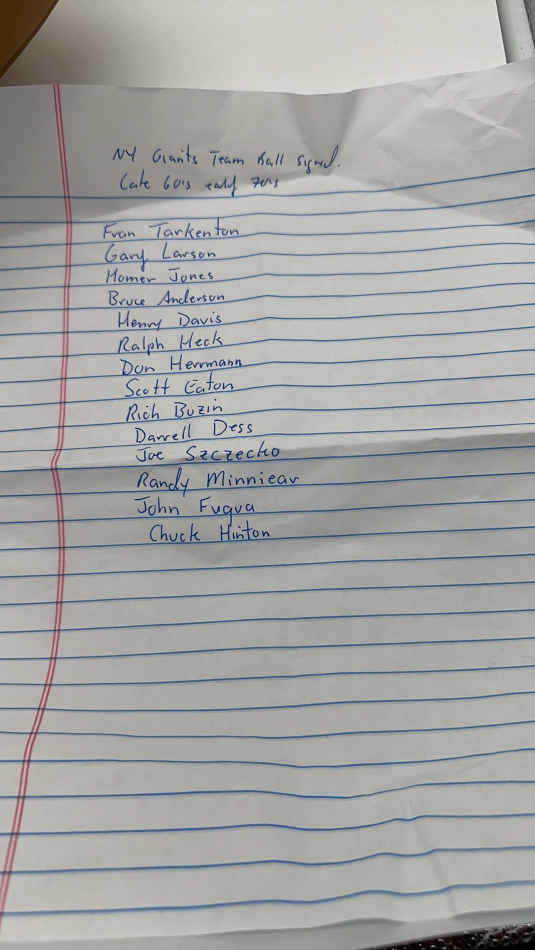 NY Giants Team Ball signed.
Late 60's early 70's
Fran Tarkenton
Gary Larson
Homer Jones
Bruce Anderson
Henry Davis
Ralph Heck
Don Herrmann
Scott Eaton
Rich Buzin
Darrell Dess
Joe Szczecko
Randy Minniear
John Fuqua
Chuck Hinton